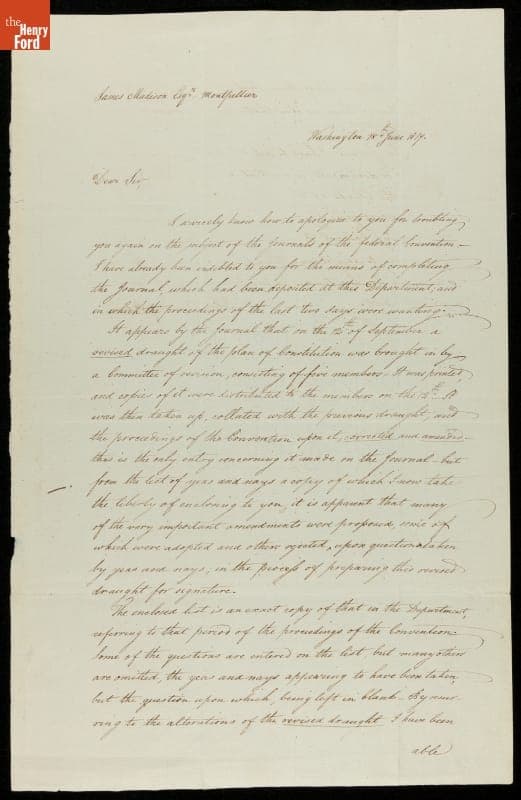 the
Henry
Ford
James Madison Esqr. Montpellier
Washington 18th June 1819.
Dear Sir,
I scarcely know how to apologize to you for troubling
you again on the subject of the Journals of the federal Convention—
I have already been indebted to you for the means of completing
the Journal, which had been deposited at this Department, and
in which the proceedings of the last two days were wanting.
It appears by the Journal that on the 12th of September a
revised draught of the plan of Constitution was brought in by
a Committee of revision, consisting of five members— It was printed,
and copies of it were distributed to the members on the 13th. It
was then taken up, collated with the previous draught, and
the proceedings of the Convention upon it, corrected and amended—
this is the only entry concerning it made on the Journal— but
from the list of yeas and nays a copy of which I now take
the liberty of enclosing to you, it is apparent that many
of the very important amendments were proposed, some of
which were adopted and other rejected, upon questions taken
by yeas and nays, in the process of preparing this revised
draught for signature.
The enclosed list is an exact copy of that in the Department,
referring to that period of the proceedings of the Convention
Some of the questions are entered on the list but many others
are omitted, the yeas and nays appearing to have been taken,
but the question upon which, being left in blank— By recur
ring to the alterations of the revised draught I have been
able